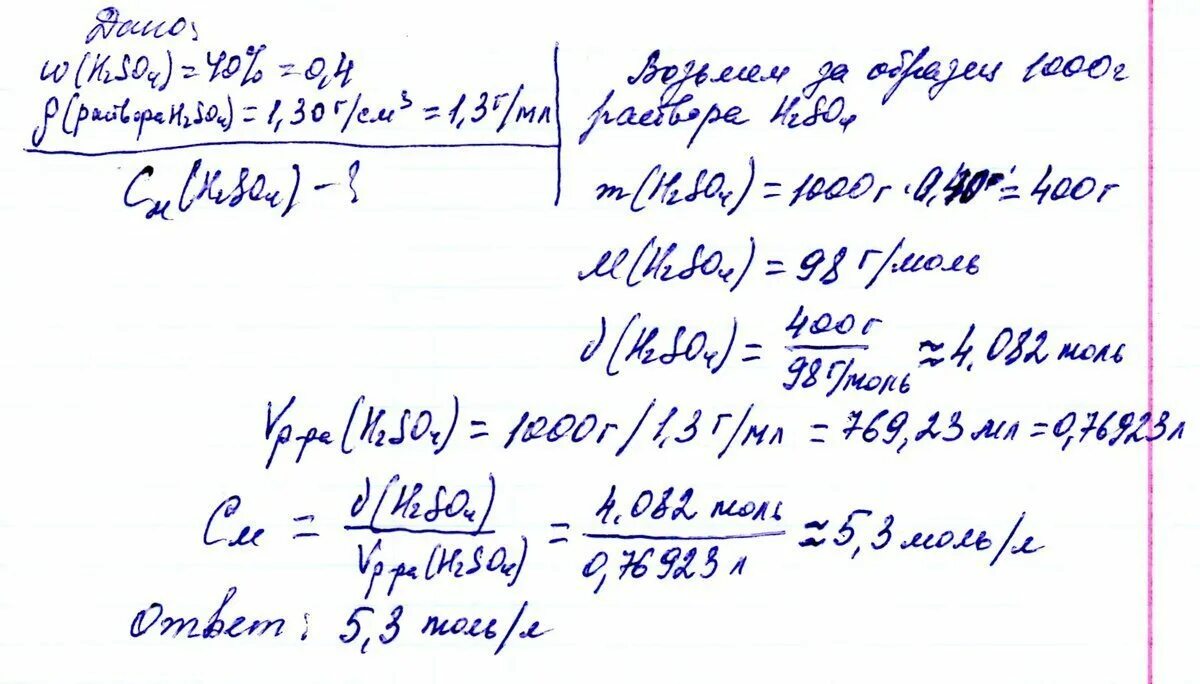 Дано:
w(H₂SO₄) = 40% = 0,4
ρ(раствора H₂SO₄) = 1,30 г/см³ = 1,3 г/мл
Cм(H₂SO₄) - ?
Возьмем за образец 1000г
раствора H₂SO₄
m(H₂SO₄) = 1000г · 0,40 = 400г
M(H₂SO₄) = 98 г/моль
ν(H₂SO₄) = 400г / 98 г/моль ≈ 4.082 моль
Vр-ра(H₂SO₄) = 1000г / 1,3 г/мл = 769,23 мл = 0,76923 л
Cм = ν(H₂SO₄) / Vр-ра(H₂SO₄) = 4.082 моль / 0,76923 л ≈ 5,3 моль/л
Ответ: 5,3 моль/л